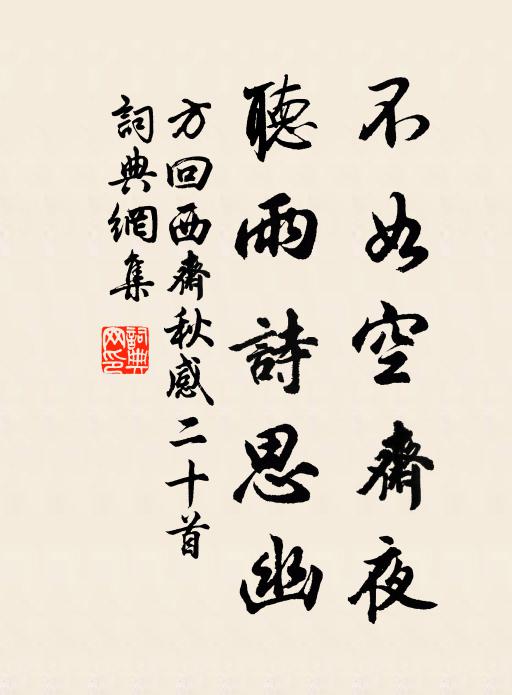 不如空齋夜
聽雨詩思幽
方回西齋秋感二十首
詞典網集
詞典網印